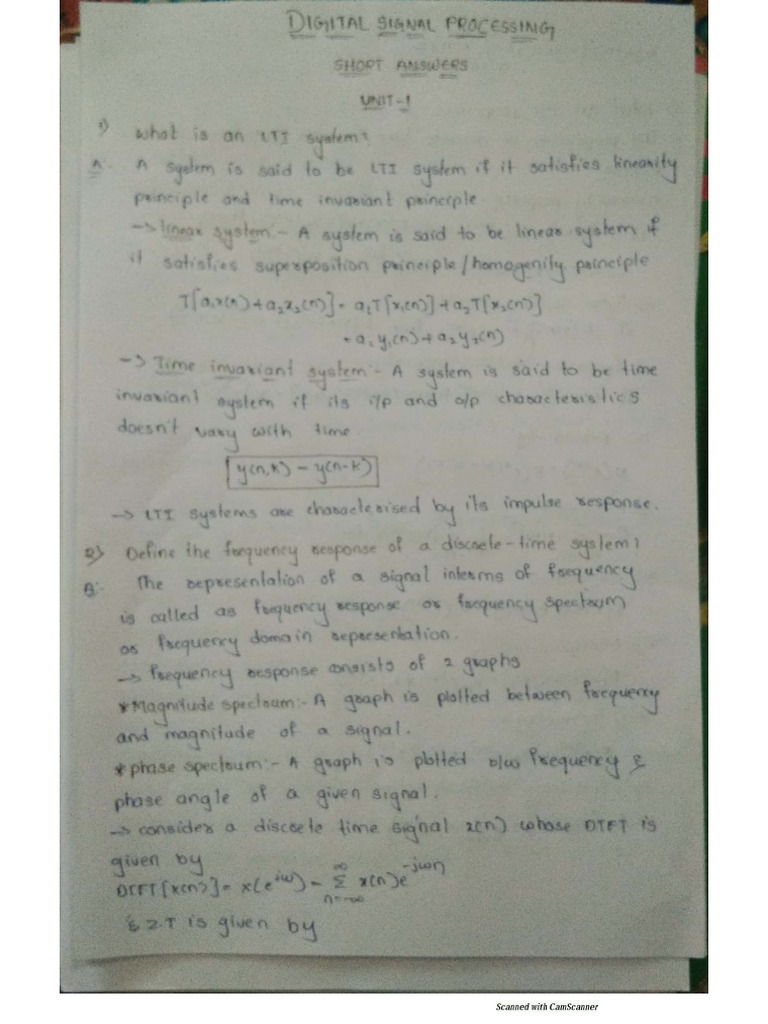 DIGITAL SIGNAL PROCESSING
SHORT ANSWERS
UNIT-1
1) What is an LTI system?
A:- A system is said to be LTI system if it satisfies linearity
principle and time invariant principle
-> linear system:- A system is said to be linear system if
it satisfies superposition principle/homogenity principle
T[a1x(n)+a2x2(n)] = a1T[x1(n)]+a2T[x2(n)]
= a1y1(n)+a2y2(n)
-> Time invariant system:- A system is said to be time
invariant system if its i/p and o/p characteristics
doesn't vary with time.
y(n,k) = y(n-k)
-> LTI systems are characterised by its impulse response.
2) Define the frequency response of a discrete-time system?
A:- The representation of a signal interms of frequency
is called as frequency response or frequency spectrum
or frequency domain representation.
-> frequency response consists of 2 graphs
*Magnitude spectrum:- A graph is plotted between frequency
and magnitude of a signal.
*phase spectrum:- A graph is plotted b/w frequency &
phase angle of a given signal.
-> consider a discrete time signal x(n) whose DTFT is
given by
DTFT[x(n)] = x(e^jω) = Σ n=-∞ ∞ x(n)e^-jωn
& Z.T is given by
Scanned with CamScanner